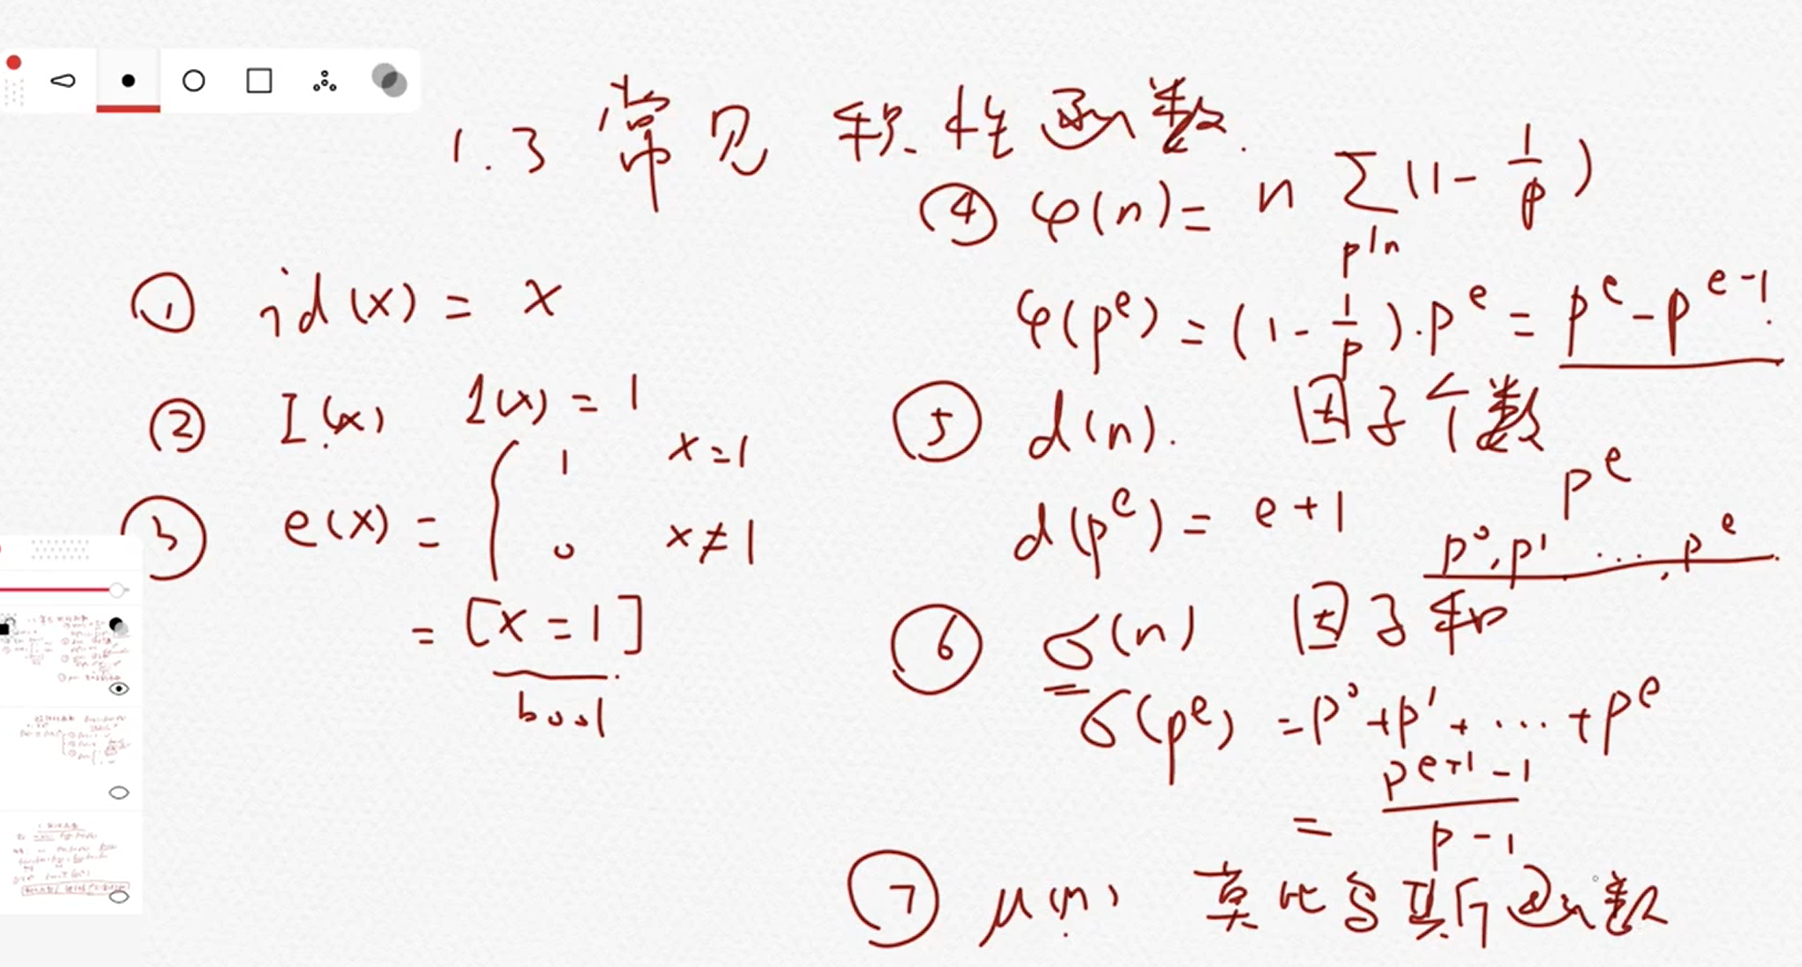 1.3 常见 积性函数.
① id(x) = x
② I(x) 1(x) = 1
③ e(x) = { 1 x=1
0 x≠1
= [x=1]
bool
④ φ(n) = n ∑ (1 - 1/p)
p|n
φ(p^e) = (1 - 1/p)·p^e = p^e - p^{e-1}.
⑤ d(n). 因子个数
p^e
d(p^e) = e+1 p^0, p^1 ..., p^e
⑥ σ(n) 因子和
σ(p^e) = p^0 + p^1 + ... + p^e
= (p^{e+1} - 1)/(p - 1)
⑦ μ(n) 莫比乌斯函数